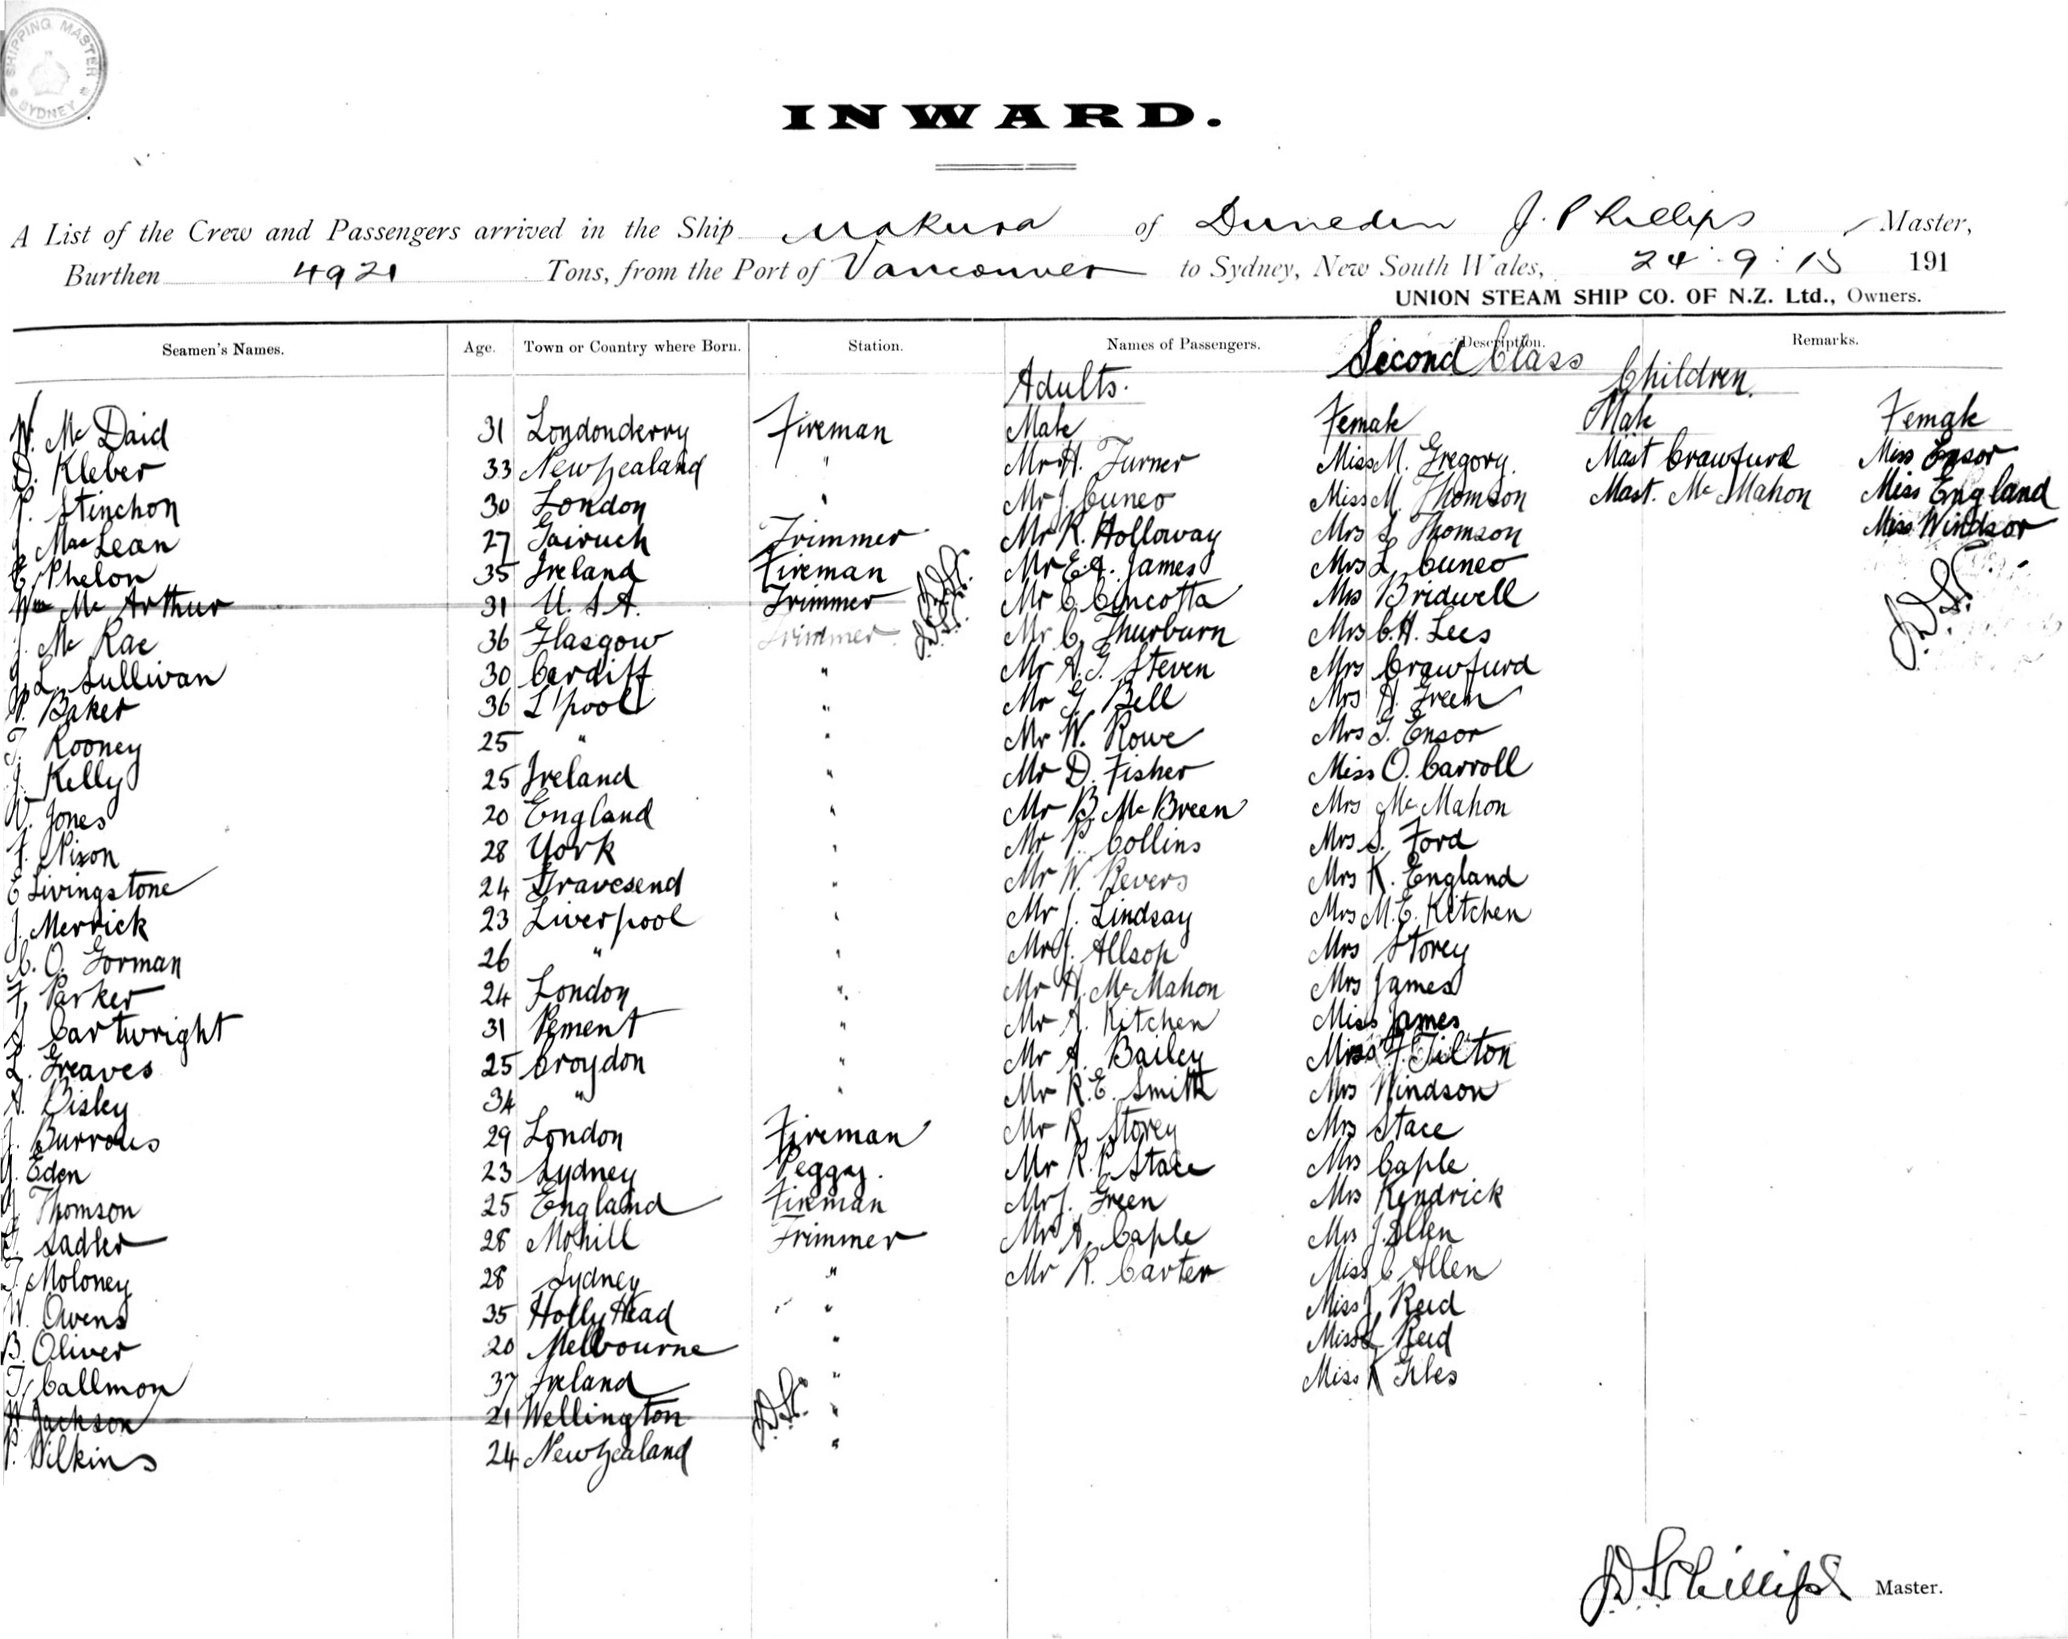 SHIPPING MASTER SYDNEY
INWARD.
A List of the Crew and Passengers arrived in the Ship Makura of Dunedin J. Phillips Master,
Burthen 4921 Tons, from the Port of Vancouver to Sydney, New South Wales, 24 : 9 : 15 191
UNION STEAM SHIP CO. OF N.Z. Ltd., Owners.
Seamen's Names. Age. Town or Country where Born. Station. Names of Passengers. Description. Remarks.
Second Class
Adults. Children.
W. Mc Daid 31 Londonderry Fireman Male Female Male Female
D. Kleber 33 New Zealand " Mr H. Turner Miss M. Gregory. Mast Crawfurd Miss Ensor
Stinchon 30 London " Mr J. Cuneo Miss M. Thomson Mast. Mc Mahon Miss England
J. MacLean 27 Gairuch Trimmer Mr R. Holloway Mrs S. Thomson Miss Windsor
E. Phelon 35 Ireland Fireman Mr E.A. James Mrs L. Cuneo
Wm Mc Arthur 31 U.S.A. Trimmer Mr C. Cincotta Mrs Bridwell
J. Mc Rae 36 Glasgow Trimmer Mr C. Thurburn Mrs C.H. Lees
Sullivan 30 Cardiff " Mr A.G. Steven Mrs Crawfurd
Baker 36 L'pool " Mr G. Bell Mrs H. Green
T. Rooney 25 " " Mr W. Rowe Mrs G. Ensor
J. Kelly 25 Ireland " Mr D. Fisher Miss O. Carroll
W. Jones 20 England " Mr B. Mc Breen Mrs Mc Mahon
F. Nixon 28 York " Mr P. Collins Mrs S. Ford
E Livingstone 24 Gravesend " Mr W. Revers Mrs K. England
J. Merrick 23 Liverpool " Mr J. Lindsay Mrs M.E. Kitchen
C. O. Gorman 26 " " Mr J. Allsop Mrs Storey
F. Parker 24 London " Mr H. Mc Mahon Mrs James
S. Cartwright 31 Pement " Mr A. Kitchen Miss James
L. Greaves 25 Croydon " Mr A. Bailey Miss F. Tilton
A. Bisley 34 " " Mr R.E. Smith Mrs Windson
J. Burrows 29 London Fireman Mr R. Storey Mrs Stace
Eden 23 Sydney Peggy. Mr R.P. Stace Mrs Caple
Thomson 25 England Fireman Mr J. Green Mrs Kendrick
Sadler 28 Mohill Trimmer Mr A. Caple Mrs J. Allen
T. Moloney 28 Sydney " Mr R. Carter Miss C Allen
W. Owens 35 Holly Head " Miss J. Reid
B. Oliver 20 Melbourne " Miss L Reid
T. Callmon 37 Ireland " Miss K Giles
Jackson 21 Wellington "
P. Wilkins 24 New Zealand "
J.D.S. Phillips Master.